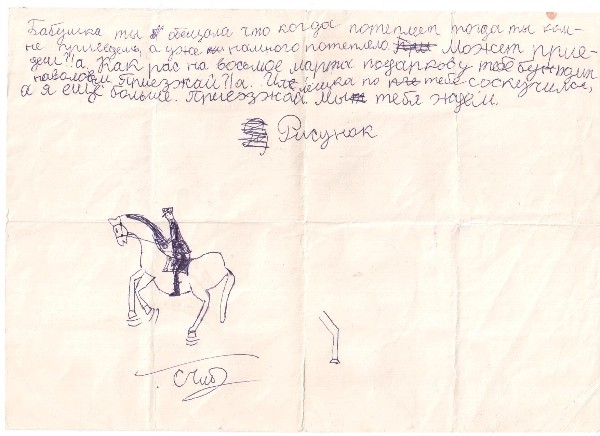 Бабушка ты обещала что когда потеплеет тогда ты ко мне
не приедеш, а уже намного потеплело. Может прие-
деш?!а. Как рас на восмое марта подарков тебе
Приезжай?!а. по тебе соскучился,
а я ещё больше. Приезжай. Мы тебя ждём.
Рисунок